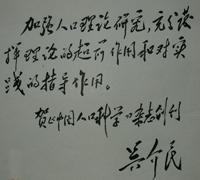 加强人口理论研究，充分发
挥理论的超前作用和对实
践的指导作用。
贺《中国人口科学》杂志创刊
吴介民